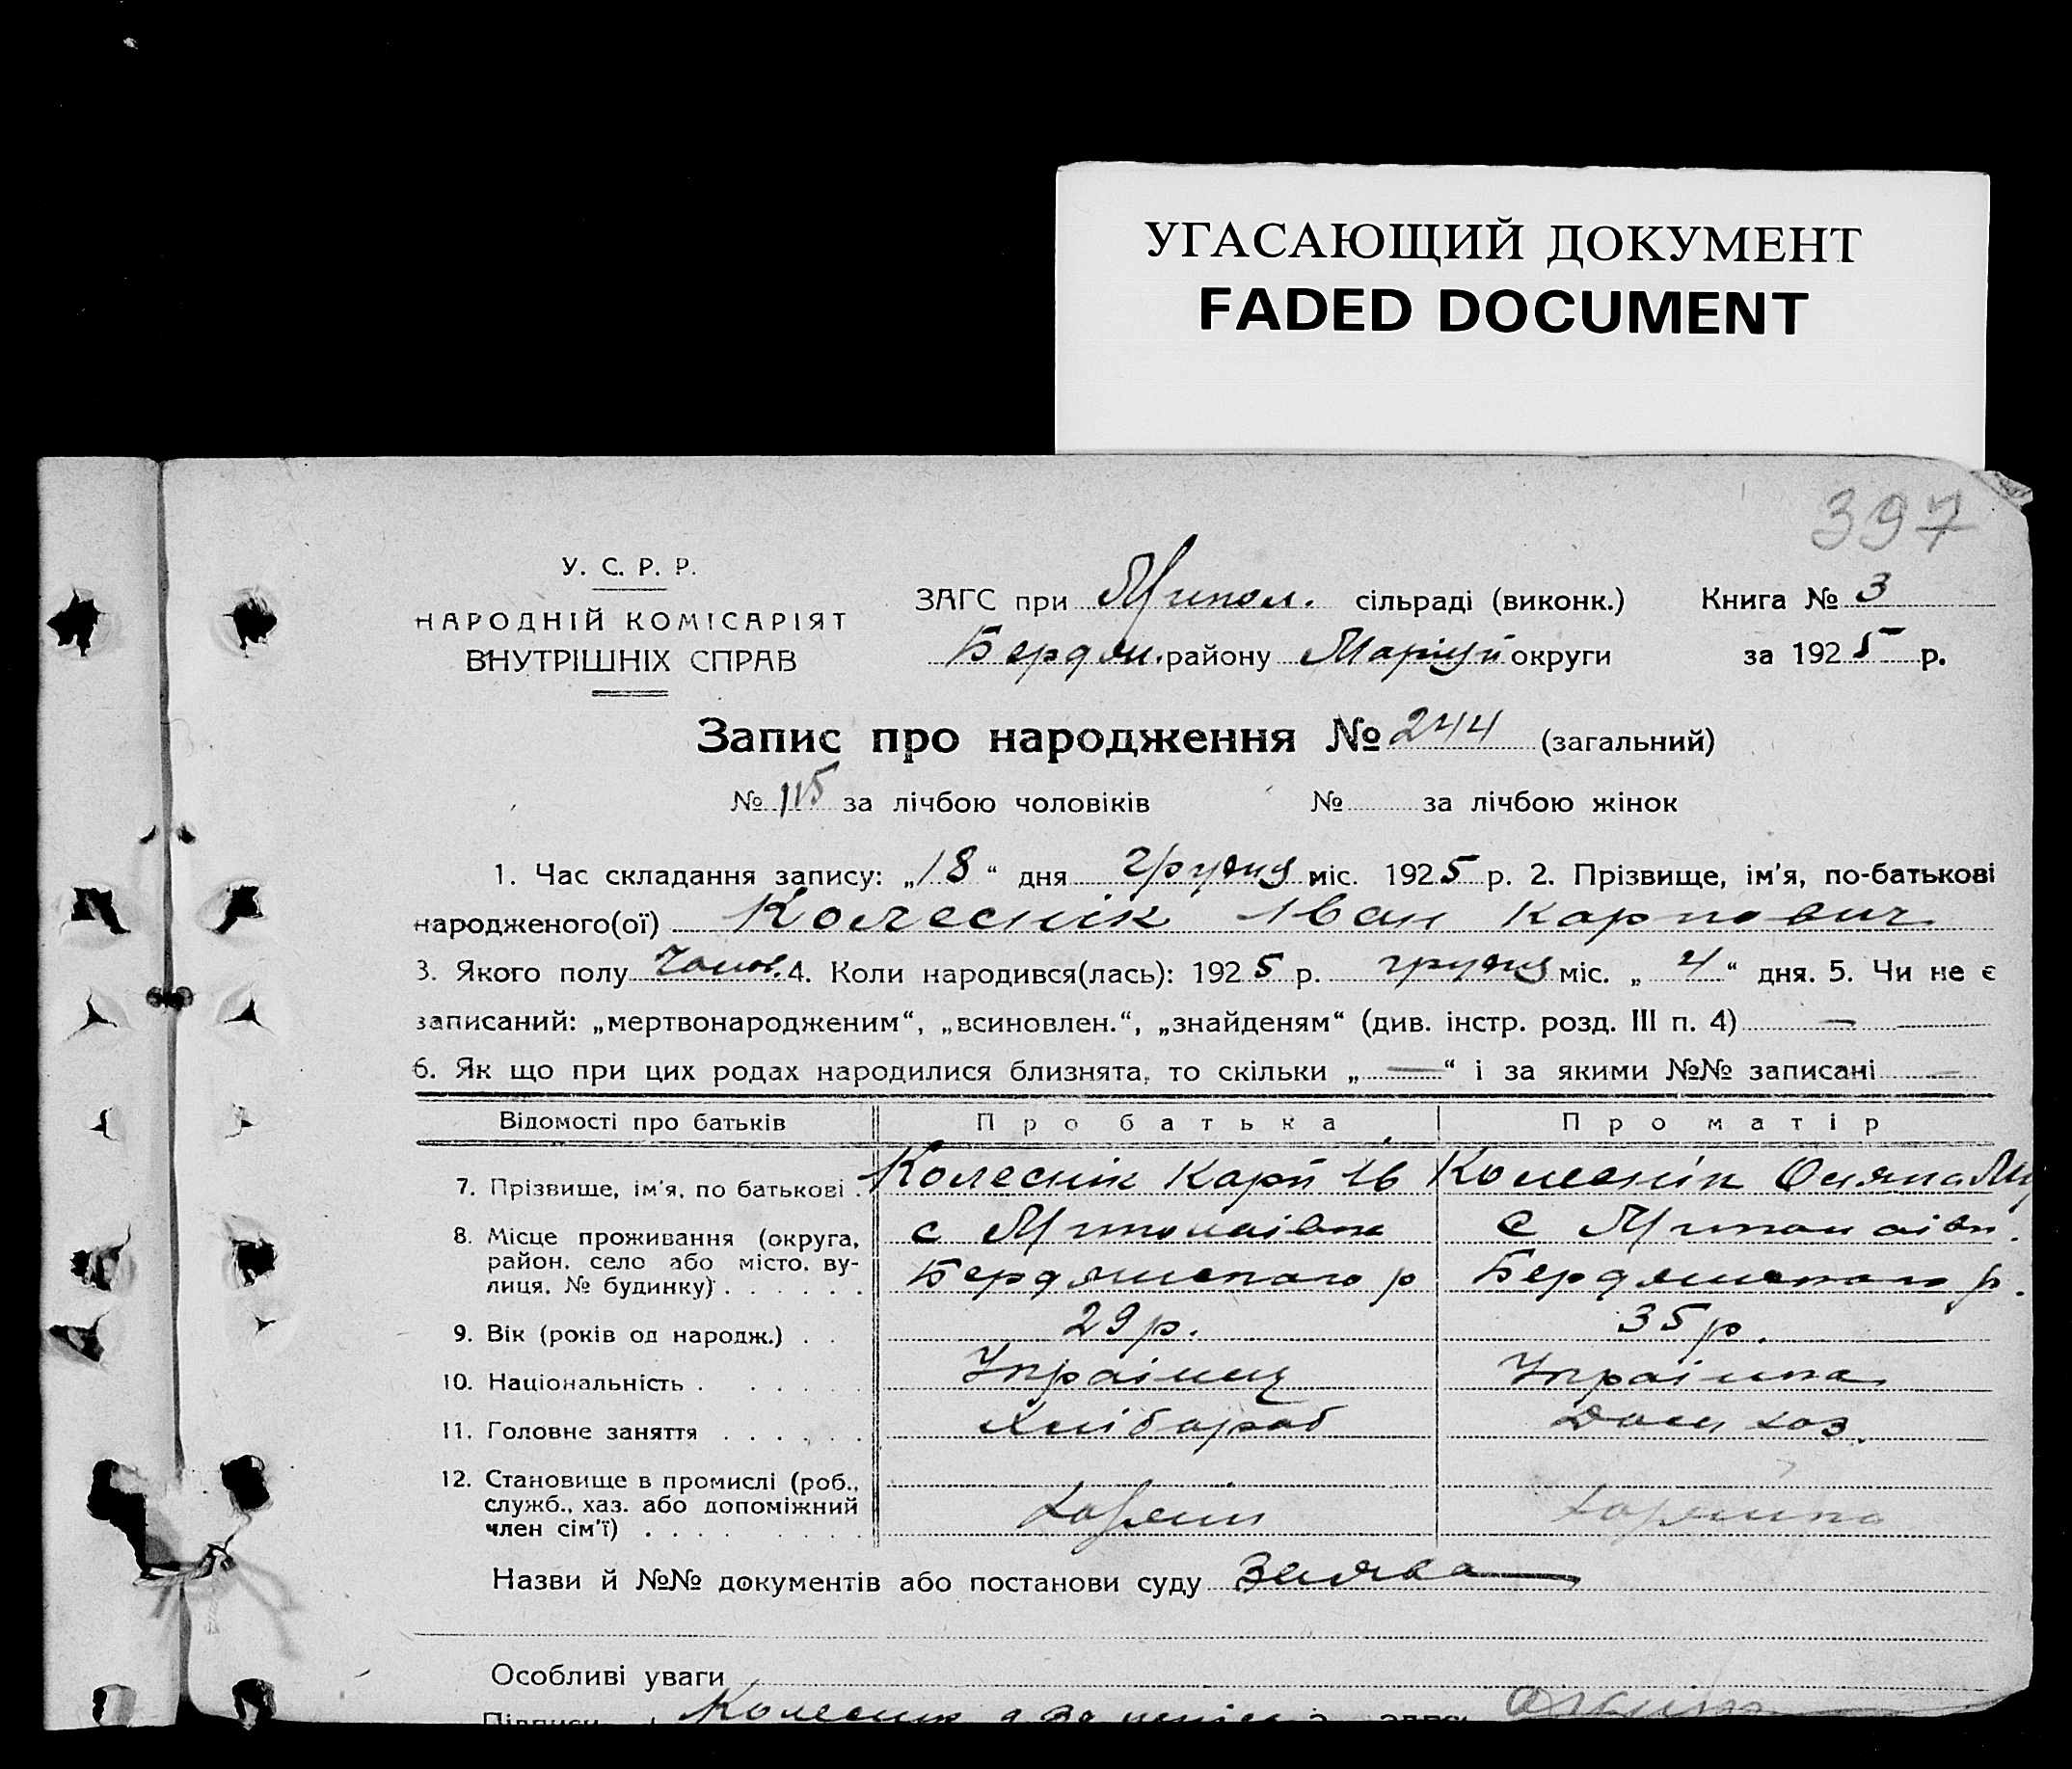 УГАСАЮЩИЙ ДОКУМЕНТ
FADED DOCUMENT
397
У. С. Р. Р.
НАРОДНІЙ КОМІСАРІЯТ
ВНУТРІШНІХ СПРАВ
ЗАГС при сільраді (виконк.) Книга № 3
Бердян. району Маріуп округи за 1925 р.
Запис про народження № 244 (загальний)
№ 115 за лічбою чоловіків № за лічбою жінок
1. Час складання запису: „18“ дня грудня міс. 1925 р. 2. Прізвище, ім'я, по-батькові
народженого(ої) Колеснік Іван Карпович
3. Якого полу Чолов. 4. Коли народився(лась): 1925 р. грудня міс. „4“ дня. 5. Чи не є
записаний: „мертвонародженим“, „всиновлен.“, „знайденям“ (див. інстр. розд. III п. 4) —
6. Як що при цих родах народилися близнята, то скільки „—“ і за якими №№ записані —
Відомості про батьків Про батька Про матір
7. Прізвище, ім'я, по батькові . Колеснік Карп Ів Колеснік
8. Місце проживання (округа, район, село або місто, вулиця, № будинку) . . . . . . с с
Бердянского р Бердянского р.
9. Вік (років од народж.) . . 29 р. 35 р.
10. Національність . . . . . . Українец Українка
11. Головне заняття . . . . . . Хлібороб Дом хоз.
12. Становище в промислі (роб., служб., хаз. або допоміжний член сім'ї) . . . . . . . .
Назви й №№ документів або постанови суду Заява
Особливі уваги
Підписи Колесник